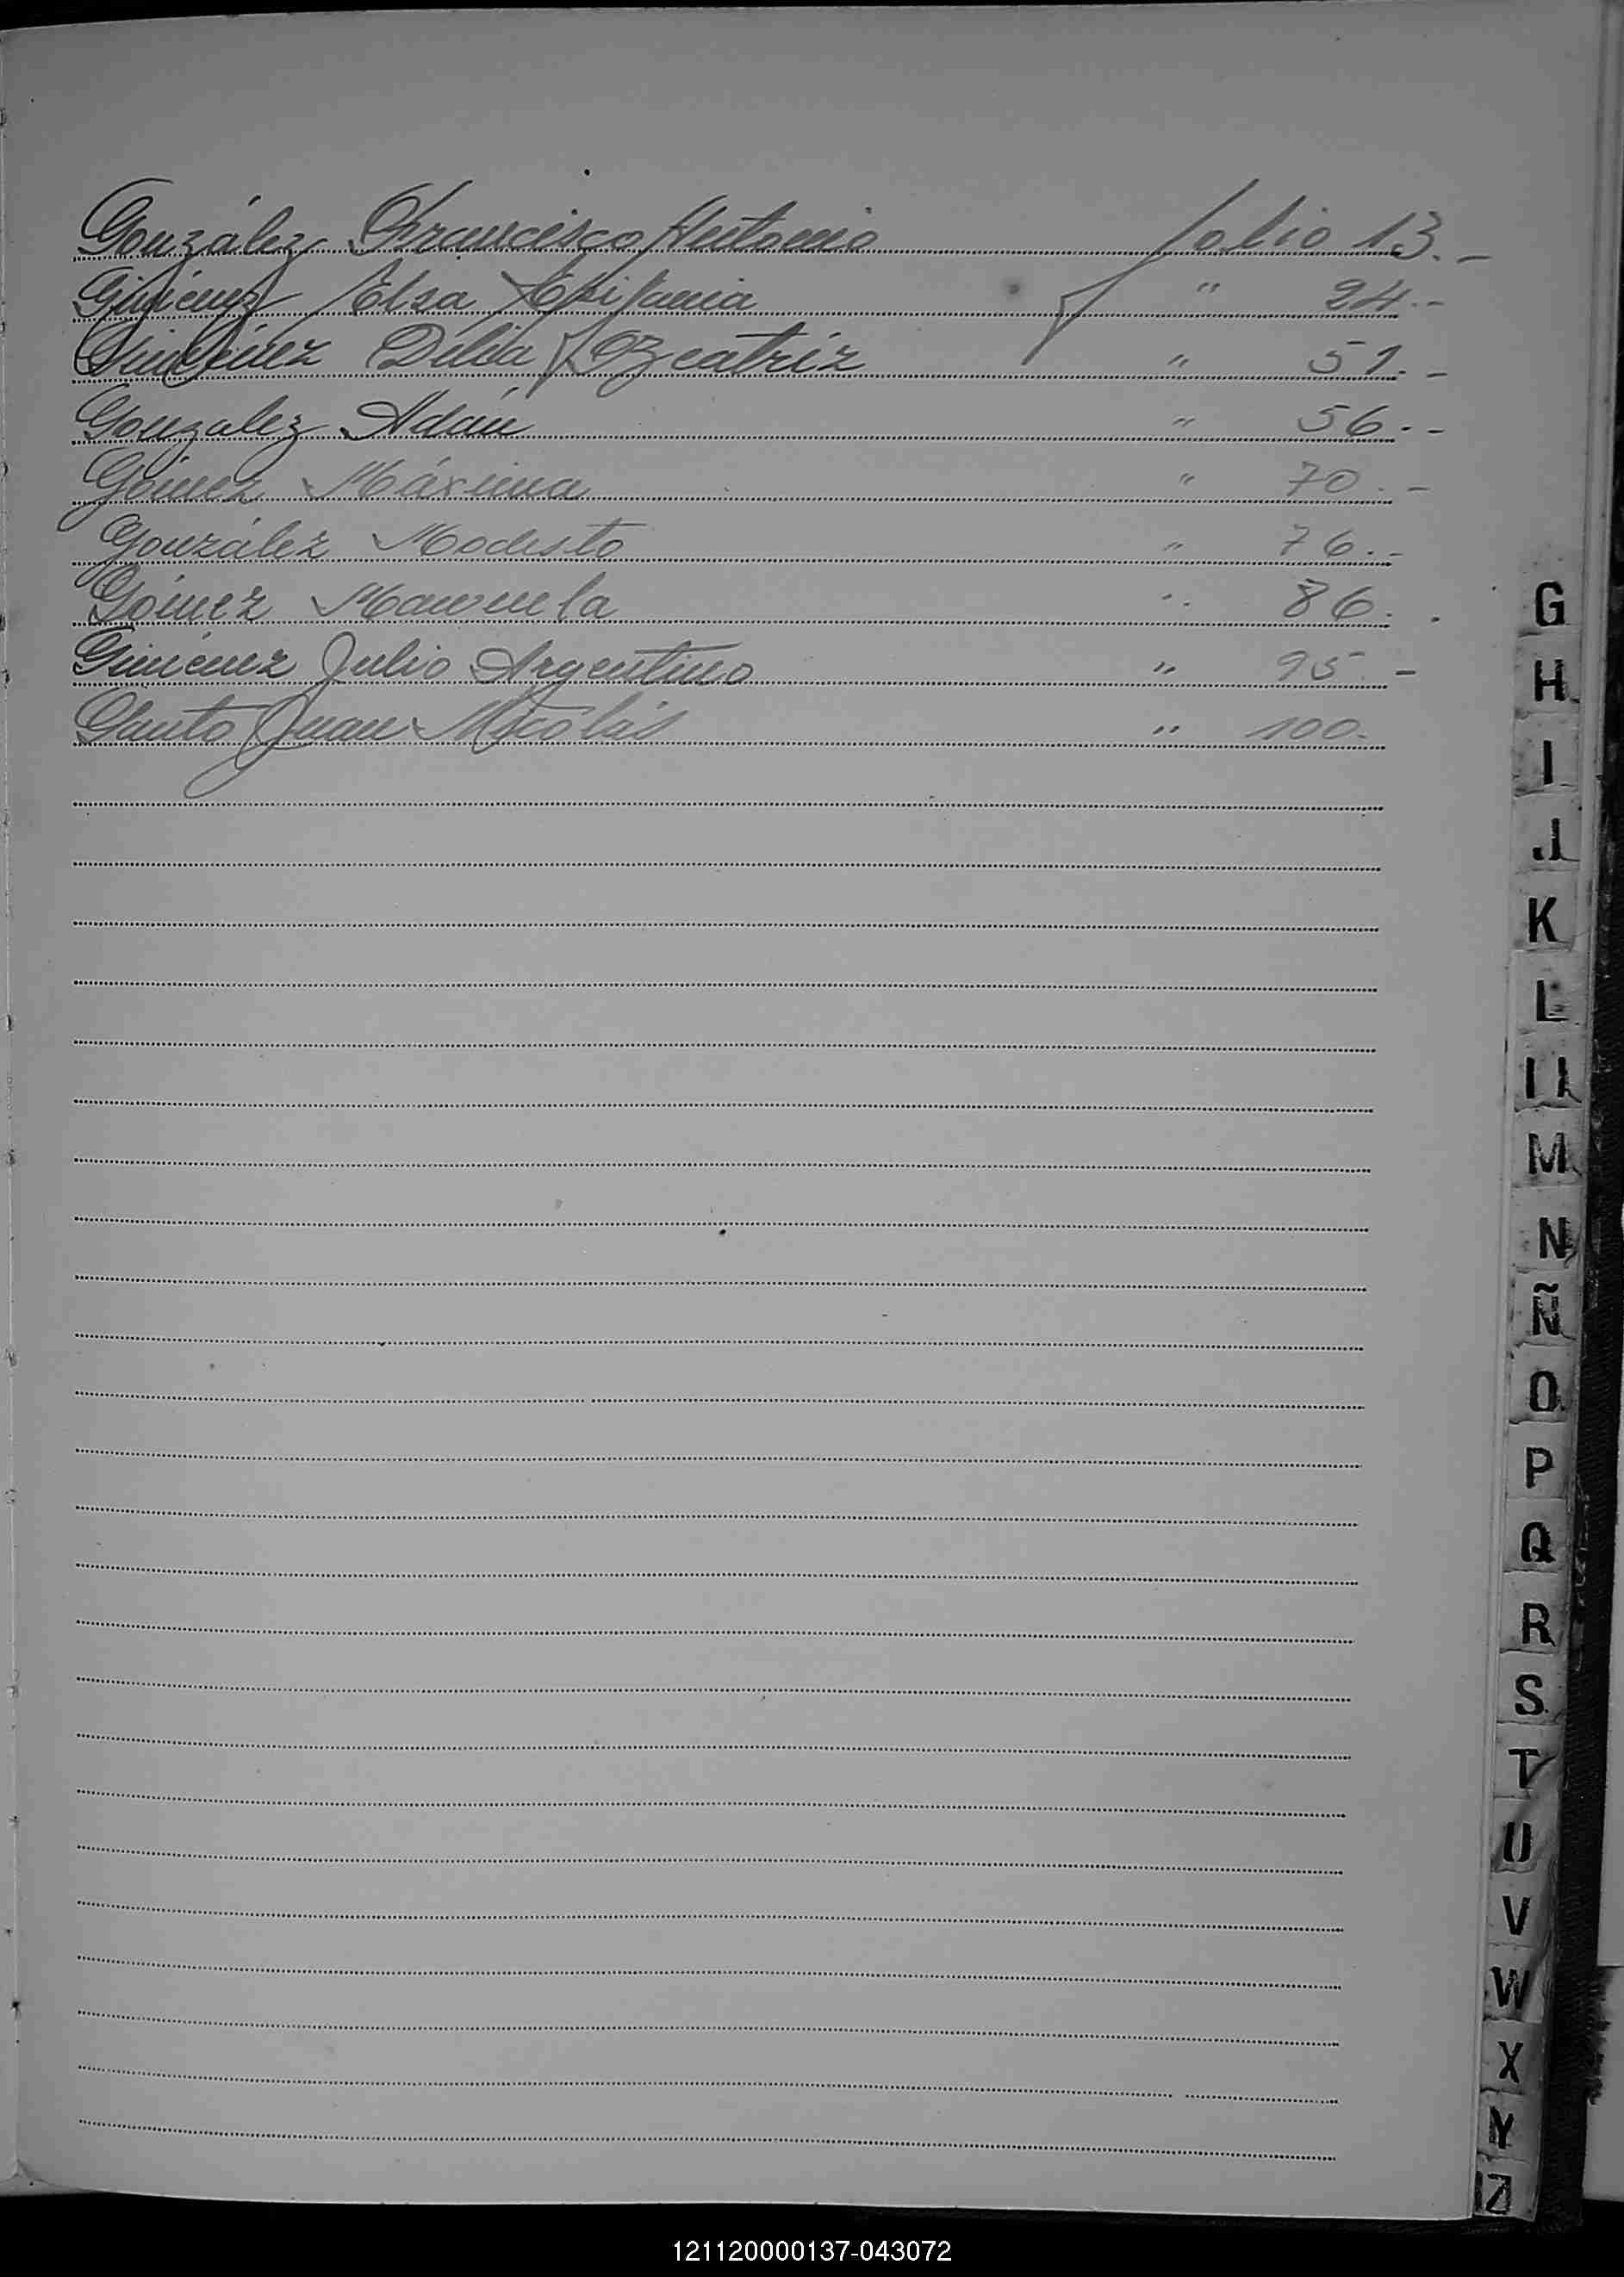 González Francisco Antonio folio 13.-
Giménez Elsa Epifania " 24.-
Giménez Delia Beatriz " 51.-
Gonzalez Adán " 56.-
Gómez Máxima " 70.-
González Modesto " 76.-
Gómez Manuela " 86.
Giménez Julio Argentino " 95.-
Juan Nicolás " 100.
G
H
I
J
K
L
Ll
M
N
Ñ
O
P
Q
R
S
T
U
V
W
X
Y
Z
121120000137-043072